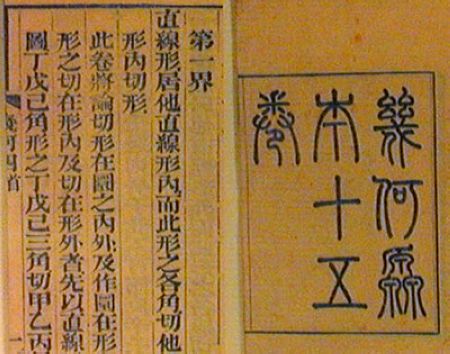 幾何原
本十五
卷
第一界
直線形居他直線形內而此形之各角切他
形內切形
此卷將論切形在圜之內外及作圜在形
形之切在形內及切在形外者先以直線
圖丁戊己角形之丁戊己三角切甲乙丙
幾何四首
一